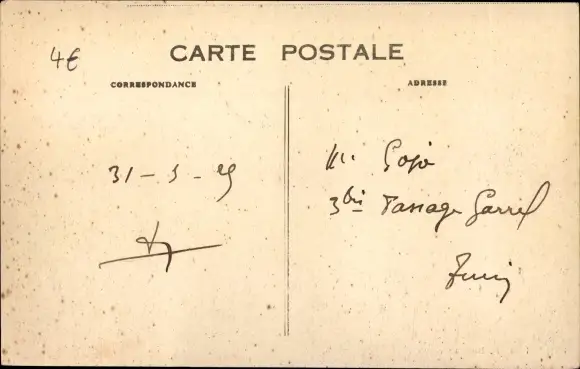 4€
CARTE POSTALE
CORRESPONDANCE
ADRESSE
31 - 3 - 29
M. Gojo
3bis Passage Garrel